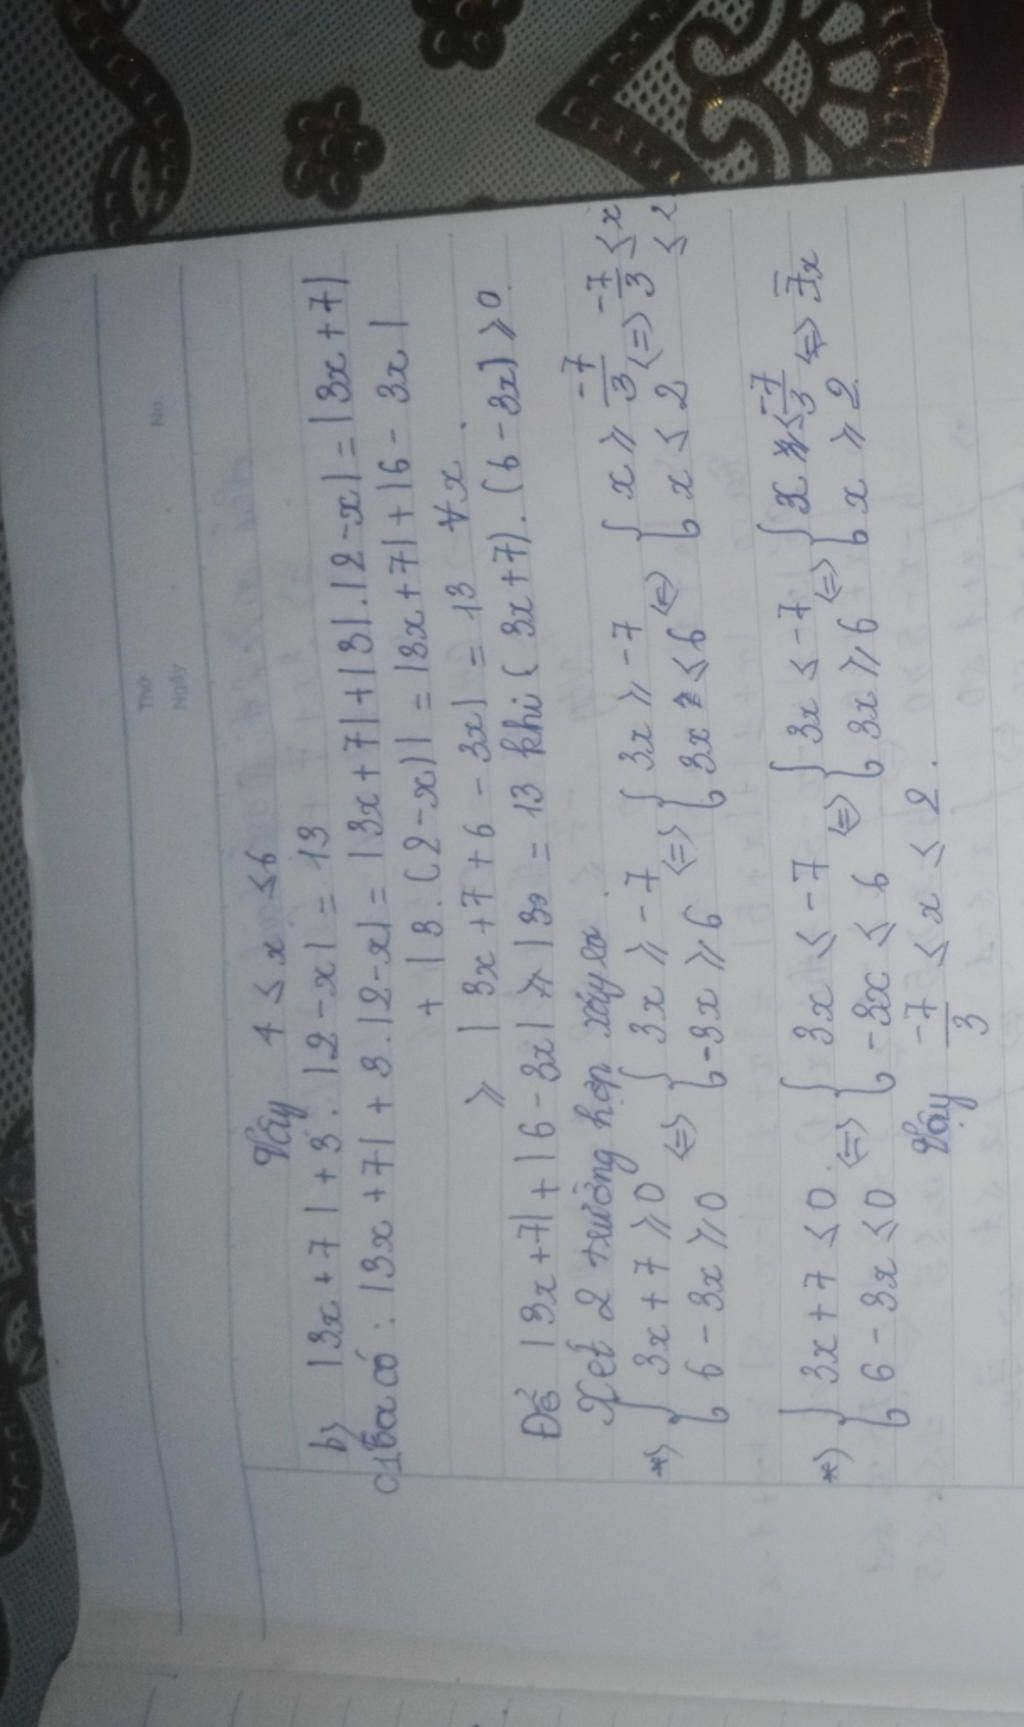 No.
Thứ
Ngày
Vậy 4 ≤ x ≤ 6
b) |3x+7| + 3.|2-x| = 13
C1 Ta có: |3x+7| + 3.|2-x| = |3x+7| + |3|.|2-x| = |3x+7|
+ |3.(2-x)| = |3x+7| + |6-3x|
≥ |3x+7+6-3x| = 13 ∀x.
Để |3x+7| + |6-3x| = 13 khi (3x+7).(6-3x) ≥ 0
Xét 2 trường hợp xảy ra
*) { 3x+7 ≥ 0 <=> { 3x ≥ -7 <=> { 3x ≥ -7 <=> { x ≥ -7/3 <=> -7/3 ≤ x
{ 6-3x ≥ 0 { -3x ≥ 6 { 3x ≤ 6 { x ≤ 2 ≤ 2
*) { 3x+7 ≤ 0 <=> { 3x ≤ -7 <=> { 3x ≤ -7 <=> { x ≤ -7/3 <=> ∄x
{ 6-3x ≤ 0 { -3x ≤ 6 { 3x ≥ 6 { x ≥ 2
Vậy -7/3 ≤ x ≤ 2.